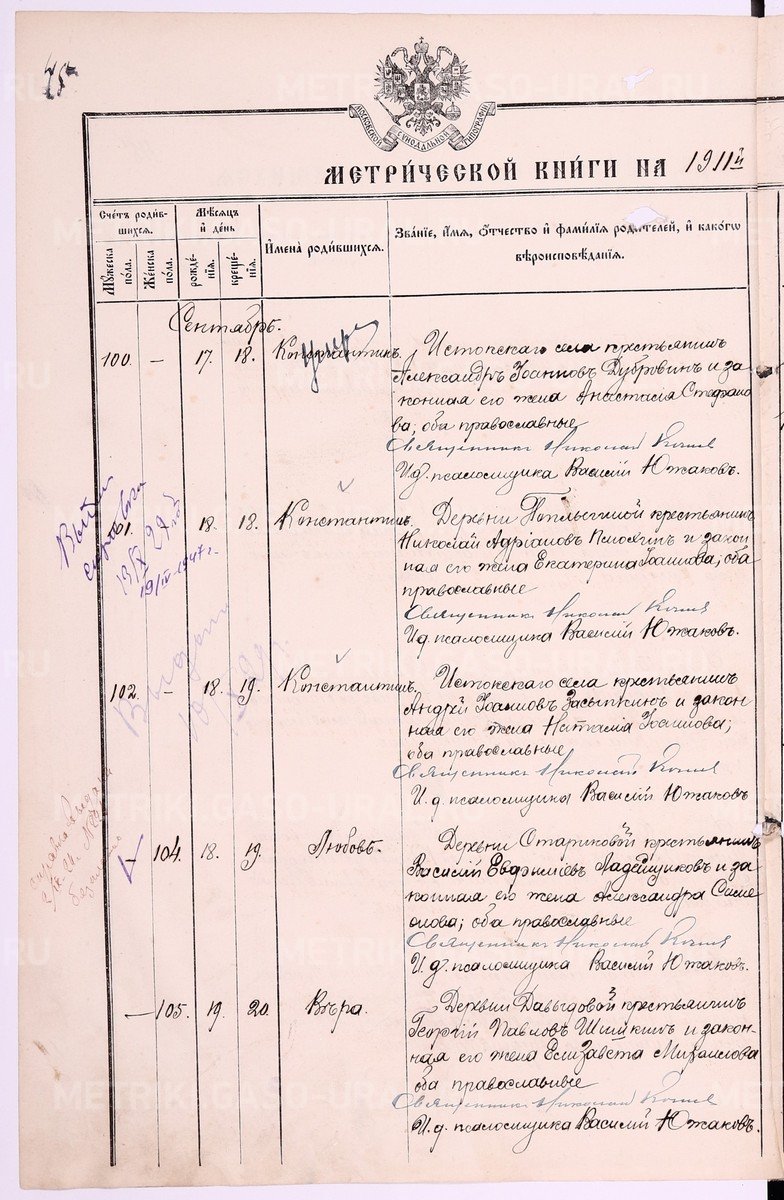 75
МОСКОВСКОЙ СѴНОДАЛЬНОЙ ТИПОГРАФІИ
МЕТРИ́ЧЕСКОЙ КНИ́ГИ НА 1911й
Сче́тъ роди́вшихсѧ.
Мꙋ́жеска по́ла.
Же́нска по́ла.
Мѣ́сѧцъ и҆ де́нь
рожде́нїѧ.
креще́нїѧ.
И҆мена̀ роди́вшихсѧ.
Зва́нїе, и҆́мѧ, ѻ҆́тчество и҆ фами́лїѧ роди́телей, и҆ како́гѡ
вѣроисповѣ́данїѧ.
Сентябрь.
100. – 17. 18. Константинъ. Истокскаго села крестьянинъ
умер
Александръ Іоанновъ Дубровинъ и за-
конная его жена Анастасія Стефано-
ва; оба православные
Священникъ Николай
И.д. псаломщика Василій Южаковъ.
101. 18. 18. Константинъ. Деревни крестьянинъ
Николай Адріановъ и закон-
ная его жена Екатерина Іоаннова; оба
православные
Священникъ Николай
И.д. псаломщика Василій Южаковъ.
19/IV-1947 г.
102. – 18. 19. Константинъ. Истокскаго села крестьянинъ
Андрей Іоанновъ Засыпкинъ и закон-
ная его жена Наталія Іоаннова;
оба православные
Священникъ Николай
И.д. псаломщика Василій Южаковъ
– 104. 18. 19. Любовь. Деревни Стариковой крестьянинъ
Василій Евфиміевъ Ладейщиковъ и за-
конная его жена Александра Симе-
онова; оба православные
Священникъ Николай
И.д. псаломщика Василій Южаковъ.
– 105. 19. 20. Вѣра. Деревни Давыдовой крестьянинъ
Георгій Павловъ Шишкинъ и закон-
ная его жена Елизавета Михаилова
оба православные
Священникъ Николай
И.д. псаломщика Василій Южаковъ.